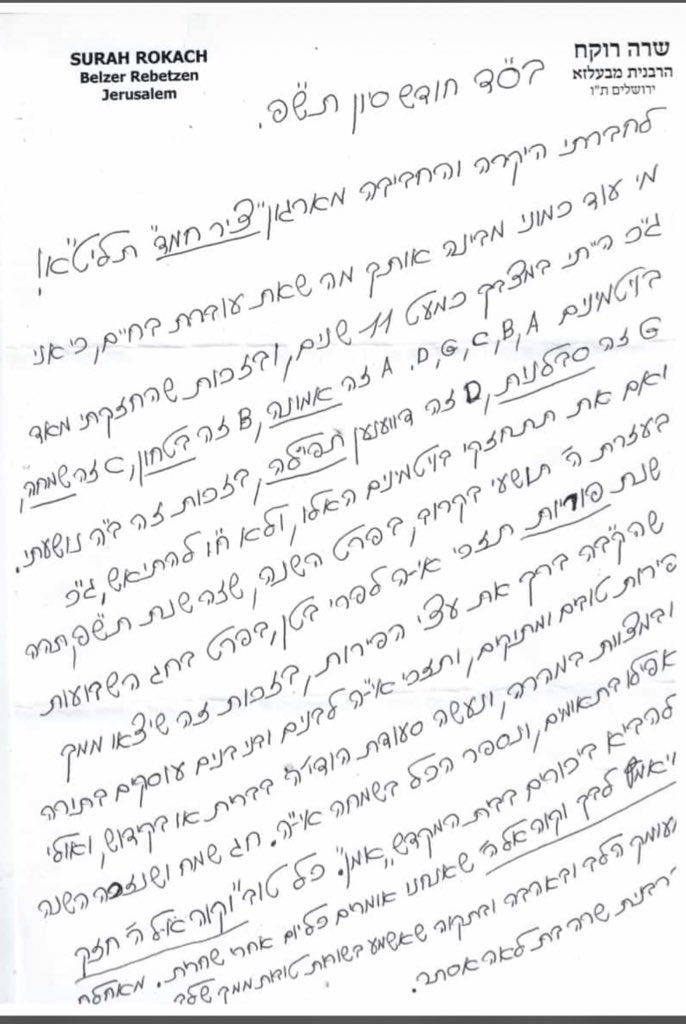 SURAH ROKACH
Belzer Rebetzen
Jerusalem
שרה רוקח
הרבנית מבעלזא
ירושלים ת"ו
בס"ד חודש סיון תש"פ.
לחברתי היקרה והחביבה מארגון "ציר חמד" תליט"א!
מי עוד כמוני מבינה אותך מה שאת עוברת בחיים, כי אני
ג"כ הייתי במצבך כמעט 11 שנים, ובזכות שהחזקתי מאד
בויטמינים A, B, C, G, D. A זה אמונה, B זה בטחון, C זה שמחה,
G זה סבלנות, D זה דווענען תפילה, בזכות זה ב"ה נושעתי.
ואם את תתחזקי בויטמינים האלו, ולא ח"ו להתיאש, ג"כ
בעזרת ה' תושעי בקרוב, בפרט השנה, שזה שנת תש"פ תהא
שנת פוריות תזכי אי"ה לפרי בטן, בפרט בחג השבועות
שהקב"ה ברך את עצי הפירות, בזכות זה שיצאו ממך
פירות טובים ומתוקים, ותזכי אי"ה לבנים ובני בנים עוסקים בתורה
ובמצוות במהרה, ונעשה סעודת הודיה בברית או בקידוש, ואולי
אפילו בתאומים, ונספר הכל בשמחה אי"ה. חג שמח ושנזכה השנה
להביא ביכורים בבית המקדש, אמן. כל טוב "וקוה אל ה' חזק
ויאמץ לבך וקוה אל ה'" שאנחנו אומרים כל יום אחרי שחרית. מאחלת
מעומק הלב ובאהבה ובתקוה שאשמע בשורות טובות ממך שלך
רבנית שרה בת לאה אסתר.